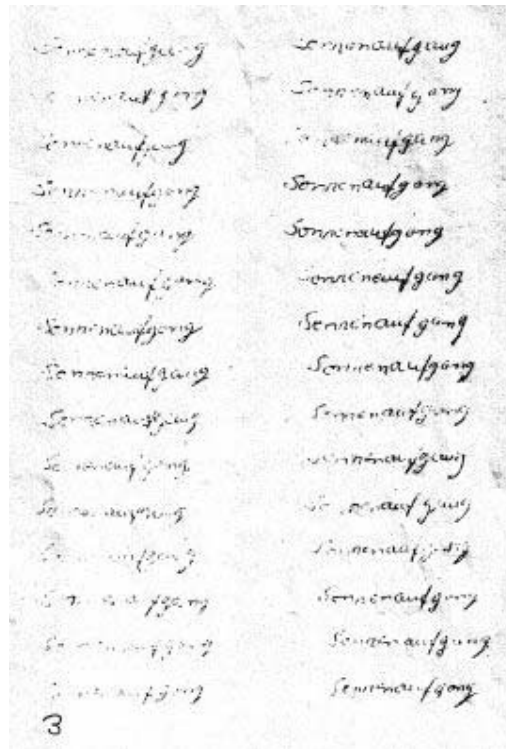 Sonnenaufgang Sonnenaufgang
Sonnenaufgang Sonnenaufgang
Sonnenaufgang Sonnenaufgang
Sonnenaufgang Sonnenaufgang
Sonnenaufgang Sonnenaufgang
Sonnenaufgang Sonnenaufgang
Sonnenaufgang Sonnenaufgang
Sonnenaufgang Sonnenaufgang
Sonnenaufgang Sonnenaufgang
Sonnenaufgang Sonnenaufgang
Sonnenaufgang Sonnenaufgang
Sonnenaufgang Sonnenaufgang
Sonnenaufgang Sonnenaufgang
Sonnenaufgang Sonnenaufgang
Sonnenaufgang Sonnenaufgang
3